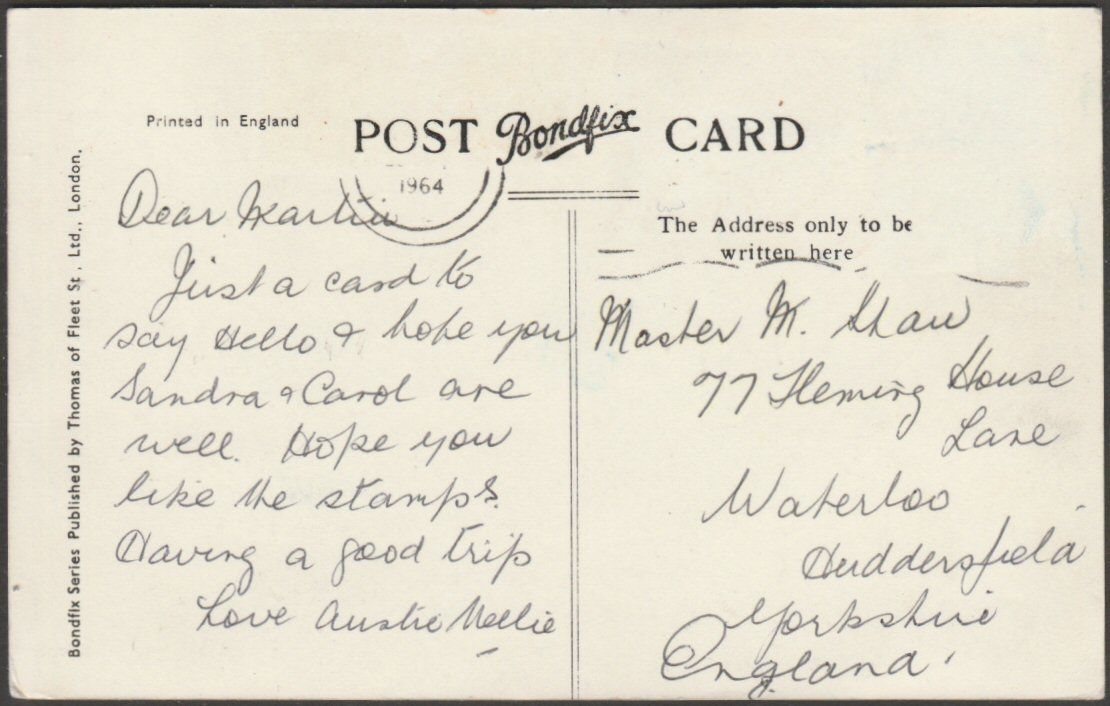 Printed in England
POST Bondfix CARD
1964
The Address only to be
written here
Bondfix Series Published by Thomas of Fleet St., Ltd., London.
Dear Martin
Just a card to
say Hello & hope you
Sandra & Carol are
well. Hope you
like the stamps.
Having a good trip
Love Auntie Nellie
Master M. Shaw
77 Fleming House
Lane
Waterloo
Huddersfield
Yorkshire
England.